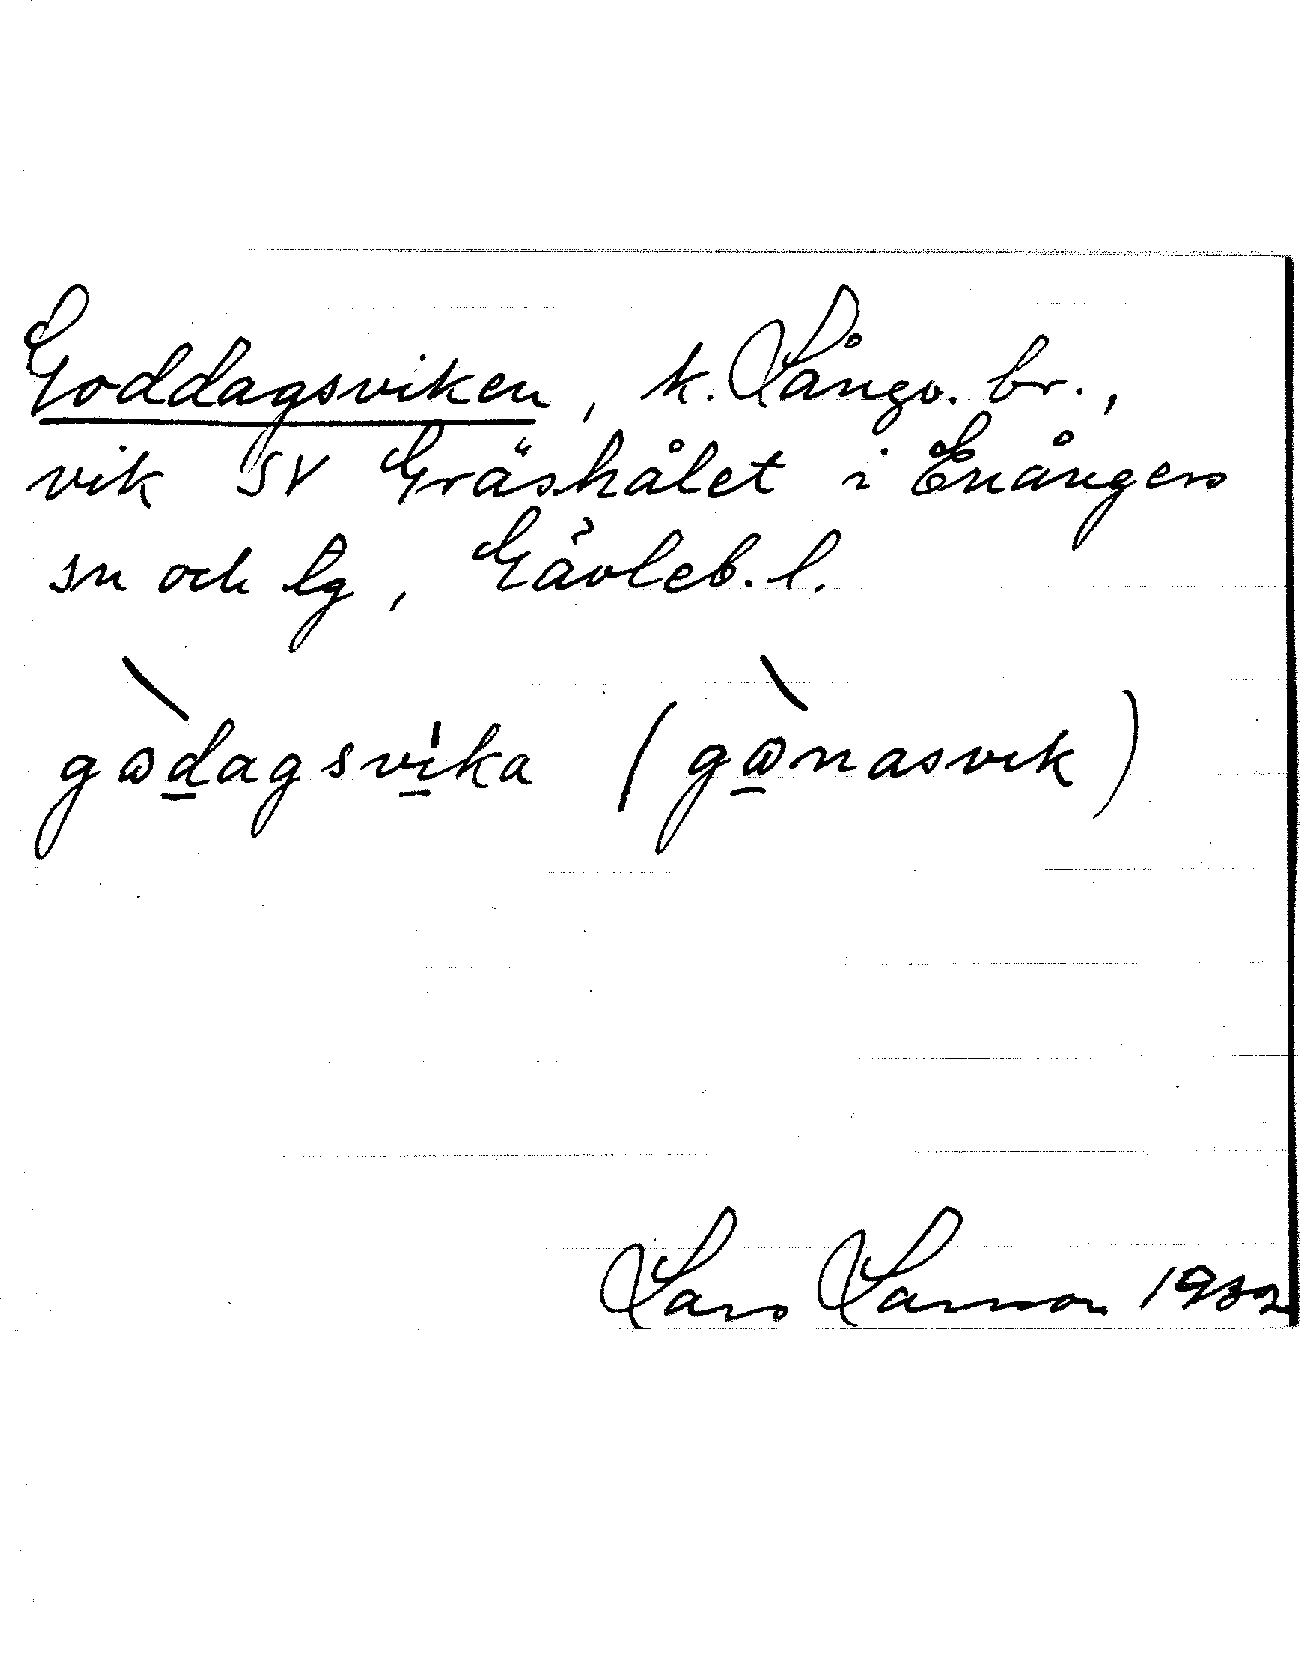 Goddagsviken, k. Långv. br.,
vik SV Gräshålet i Enångers
sn och lg, Gävleb. l.
gɷ̀dagsvika (gɷ̀nasvik)
Lars Larsson 1932